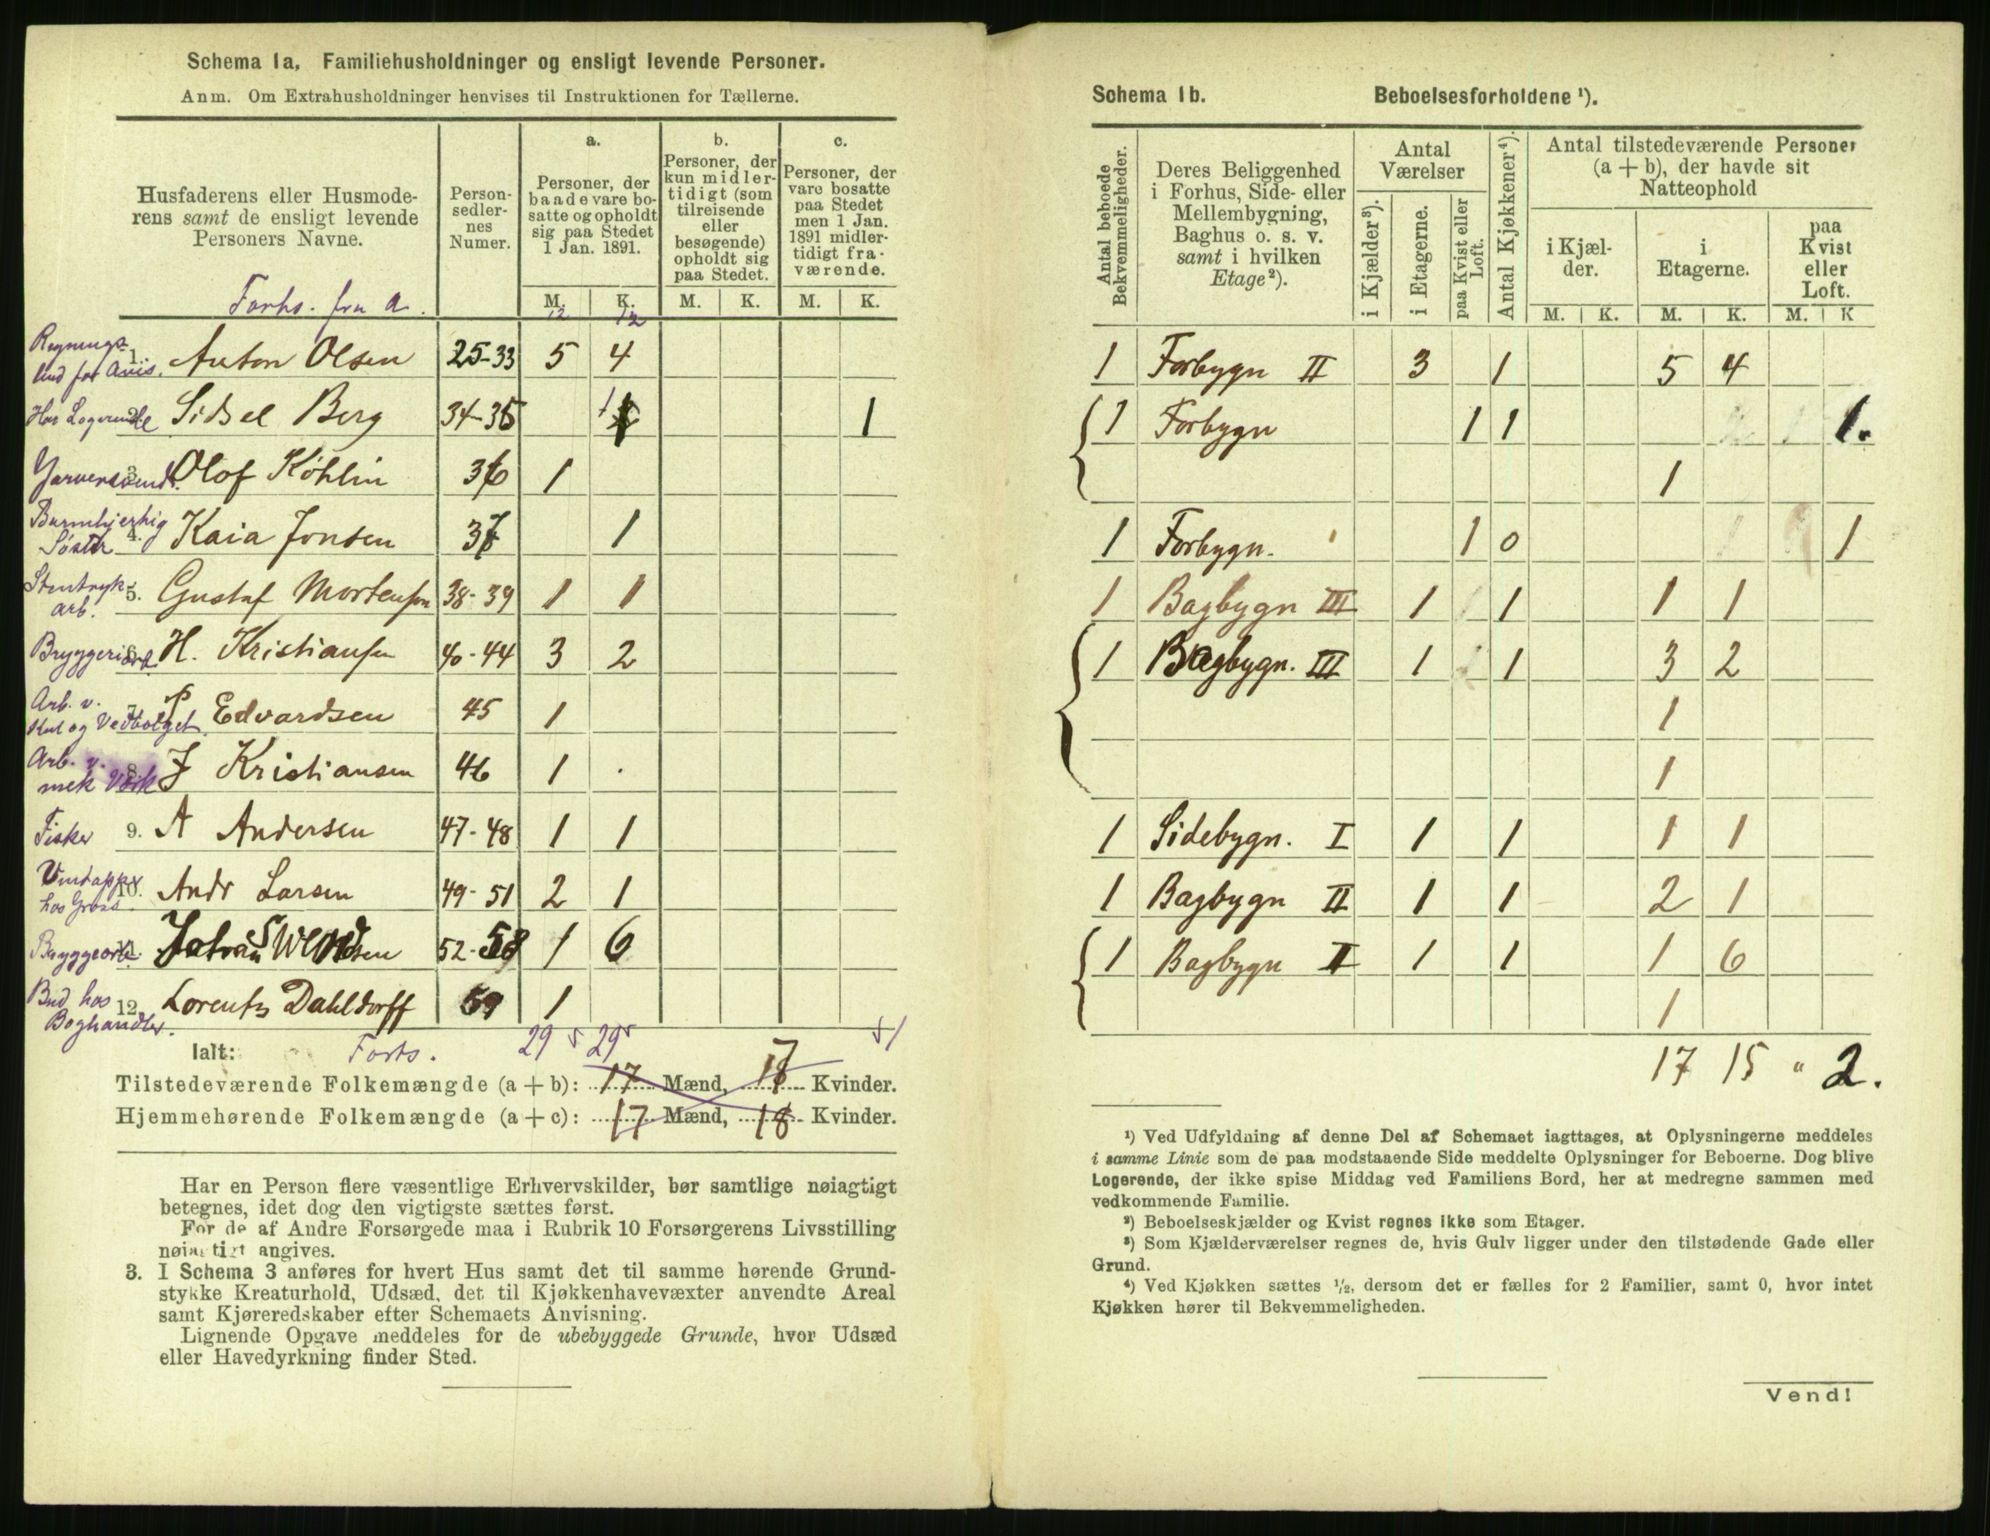 Schema 1a, Familiehusholdninger og ensligt levende Personer.
Anm. Om Extrahusholdninger henvises til Instruktionen for Tællerne.
Husfaderens eller Husmode-
rens samt de ensligt levende
Personers Navne.
Forts. fra a.
Person-
sedler-
nes
Numer.
a.
Personer, der
baade vare bo-
satte og opholdt
sig paa Stedet
1 Jan. 1891.
b.
Personer, der
kun midler-
tidigt (som
tilreisende
eller
besøgende)
opholdt sig
paa Stedet.
c.
Personer, der
vare bosatte
paa Stedet
men 1 Jan.
1891 midler-
tidigt fra-
værende.
M. K. M. K. M. K.
12 12
1. Anton Olsen 25-33 5 4
Har Logerende 2. Sidsel Berg 34-35 1 1
Garversvend 3. Olof Köhlin 36 1
Barmhjertig Søster 4. Kaia Jonsen 37 1
Stentryk- arb. 5. Gustaf Mortensen 38-39 1 1
Bryggeriarb. 6. H. Kristiansen 40-44 3 2
Arb. v. Kul og Vedbolget 7. P Edvardsen 45 1
Arb. v. mek Værk 8. J Kristiansen 46 1
Fisker 9. A Andersen 47-48 1 1
hos Gross. 10. Andr Larsen 49-51 2 1
11. 52-58 1 6
Bud hos Boghandler. 12. Lorents Dahldorff 59 1
Ialt: Forts. 29 29
Tilstedeværende Folkemængde (a + b): 17 Mænd, 17 Kvinder.
Hjemmehørende Folkemængde (a + c): 17 Mænd, 18 Kvinder.
Har en Person flere væsentlige Erhvervskilder, bør samtlige nøiagtigt
betegnes, idet dog den vigtigste sættes først.
For de af Andre Forsørgede maa i Rubrik 10 Forsørgerens Livsstilling
nøiagtigt angives.
3. I Schema 3 anføres for hvert Hus samt det til samme hørende Grund-
stykke Kreaturhold, Udsæd, det til Kjøkkenhavevæxter anvendte Areal
samt Kjøreredskaber efter Schemaets Anvisning.
Lignende Opgave meddeles for de ubebyggede Grunde, hvor Udsæd
eller Havedyrkning finder Sted.
Schema 1b. Beboelsesforholdene ¹).
Antal beboede
Bekvemmeligheder.
Deres Beliggenhed
i Forhus, Side- eller
Mellembygning,
Baghus o. s. v.
samt i hvilken
Etage²).
Antal
Værelser
i Kjælder³).
i Etagerne.
paa Kvist eller
Loft.
Antal Kjøkkener⁴).
Antal tilstedeværende Personer
(a + b), der havde sit
Natteophold
i Kjæl-
der.
i
Etagerne.
paa
Kvist
eller
Loft.
M. K. M. K. M. K
1 Forbygn II 3 1 5 4
1 Forbygn 1 1 1.
1
1 Forbygn. 1 0 1
1 Bagbygn III 1 1 1 1
1 Bagbygn. III 1 1 3 2
1
1
1 Sidebygn. I 1 1 1 1
1 Bagbygn II 1 1 2 1
1 Bagbygn II 1 1 1 6
1
17 15 " 2.
¹) Ved Udfyldning af denne Del af Schemaet iagttages, at Oplysningerne meddeles
i samme Linie som de paa modstaaende Side meddelte Oplysninger for Beboerne. Dog blive
Logerende, der ikke spise Middag ved Familiens Bord, her at medregne sammen med
vedkommende Familie.
²) Beboelseskjælder og Kvist regnes ikke som Etager.
³) Som Kjælderværelser regnes de, hvis Gulv ligger under den tilstødende Gade eller
Grund.
⁴) Ved Kjøkken sættes ½, dersom det er fælles for 2 Familier, samt 0, hvor intet
Kjøkken hører til Bekvemmeligheden.
Vend!